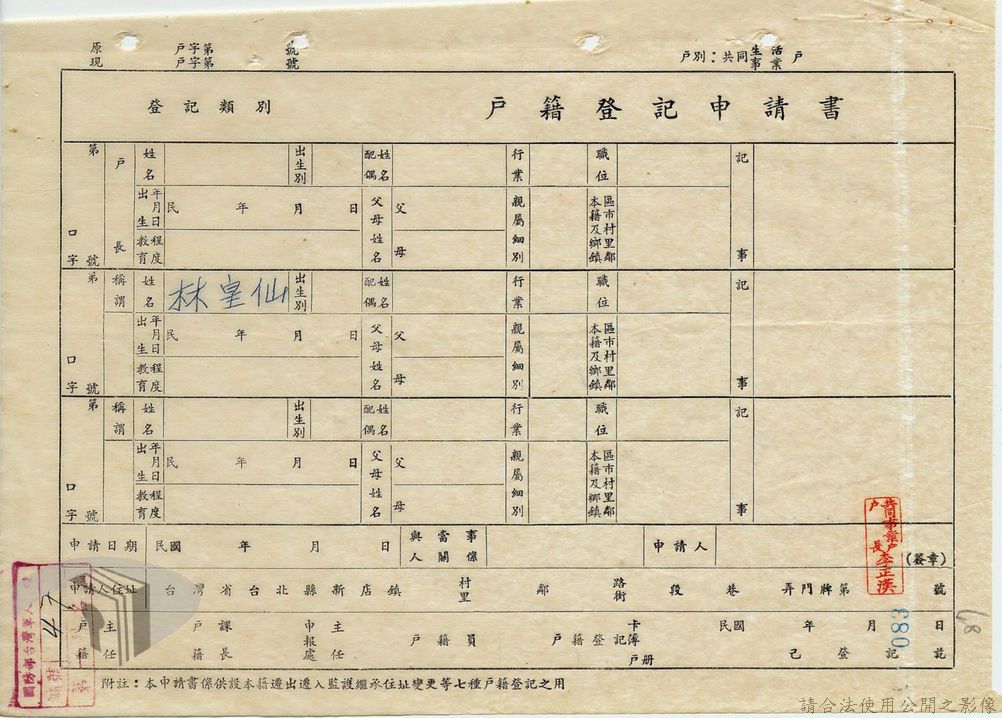 原 戶字第 號
現 戶字第 號
戶別：共同生活戶
事業
登記類別
戶籍登記申請書
第 口字 號
戶長
姓名
出生別
配偶姓名
行業
職位
記事
出生年月日
民 年 月 日
父母姓名
父
母
親屬細別
本籍及鄉鎮區市村里鄰
教育程度
第 口字 號
稱謂
姓名
林皇仙
出生別
配偶姓名
行業
職位
記事
出生年月日
民 年 月 日
父母姓名
父
母
親屬細別
本籍及鄉鎮區市村里鄰
教育程度
第 口字 號
稱謂
姓名
出生別
配偶姓名
行業
職位
記事
出生年月日
民 年 月 日
父母姓名
父
母
親屬細別
本籍及鄉鎮區市村里鄰
教育程度
申請日期 民國 年 月 日
與當事人關係
申請人
共同事業戶
戶長李正漢
(簽章)
申請人住址 台灣省台北縣新店鎮 村里 鄰 路街 段 巷 弄門牌第 號
戶籍主任
戶籍課長
申報處主任
戶籍員
戶籍登記簿
卡
戶冊
民國 年 月 日
已登記訖
083
68
國防部台灣軍人
附註：本申請書係供設本籍遷出遷入監護繼承住址變更等七種戶籍登記之用
請合法使用公開之影像